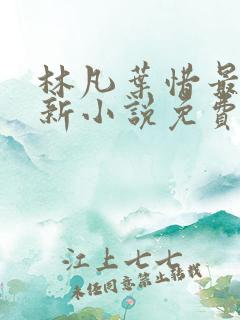 林凡葉惜最
新小說免費
江上七七
未经同意禁止转载